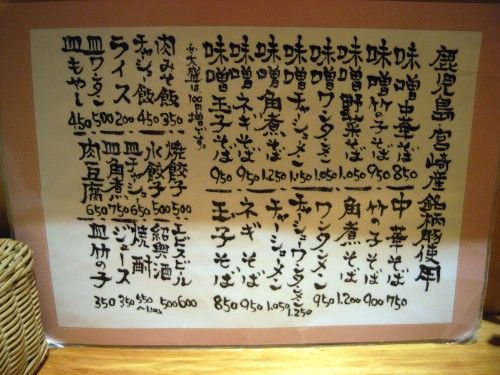 鹿児島、宮崎産銘柄豚使用
味噌中華そば 850
味噌竹の子そば 950
味噌野菜そば 1.050
味噌ワンタンメン 1.050
味噌チャーシューメン 1.150
味噌角煮そば 1.250
味噌ネギそば 950
味噌玉子そば 950
※大盛は100円増です。
中華そば 750
竹の子そば 900
角煮そば 1.200
ワンタンメン 950
チャーシューワンタンメン 1.250
チャーシューメン 1.050
ネギそば 950
玉子そば 850
肉みそ飯 350
チャーシュー飯 450
ライス 200
皿ワンタン 500
皿もやし 450
焼餃子 500
水餃子 500
皿チャーシュー 650
皿角煮 750
肉豆腐 650
エビスビール 600
紹興酒 500
焼酎 550〜
ジュース 350
皿竹の子 350